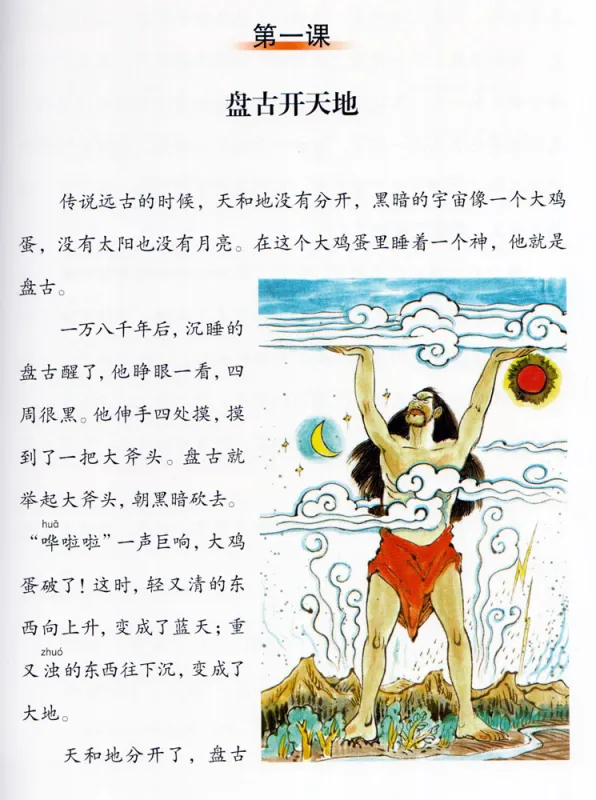 第一课
盘古开天地
传说远古的时候，天和地没有分开，黑暗的宇宙像一个大鸡
蛋，没有太阳也没有月亮。在这个大鸡蛋里睡着一个神，他就是
盘古。
一万八千年后，沉睡的
盘古醒了，他睁眼一看，四
周很黑。他伸手四处摸，摸
到了一把大斧头。盘古就
举起大斧头，朝黑暗砍去。
huā
“哗啦啦”一声巨响，大鸡
蛋破了！这时，轻又清的东
西向上升，变成了蓝天；重
zhuó
又浊的东西往下沉，变成了
大地。
天和地分开了，盘古